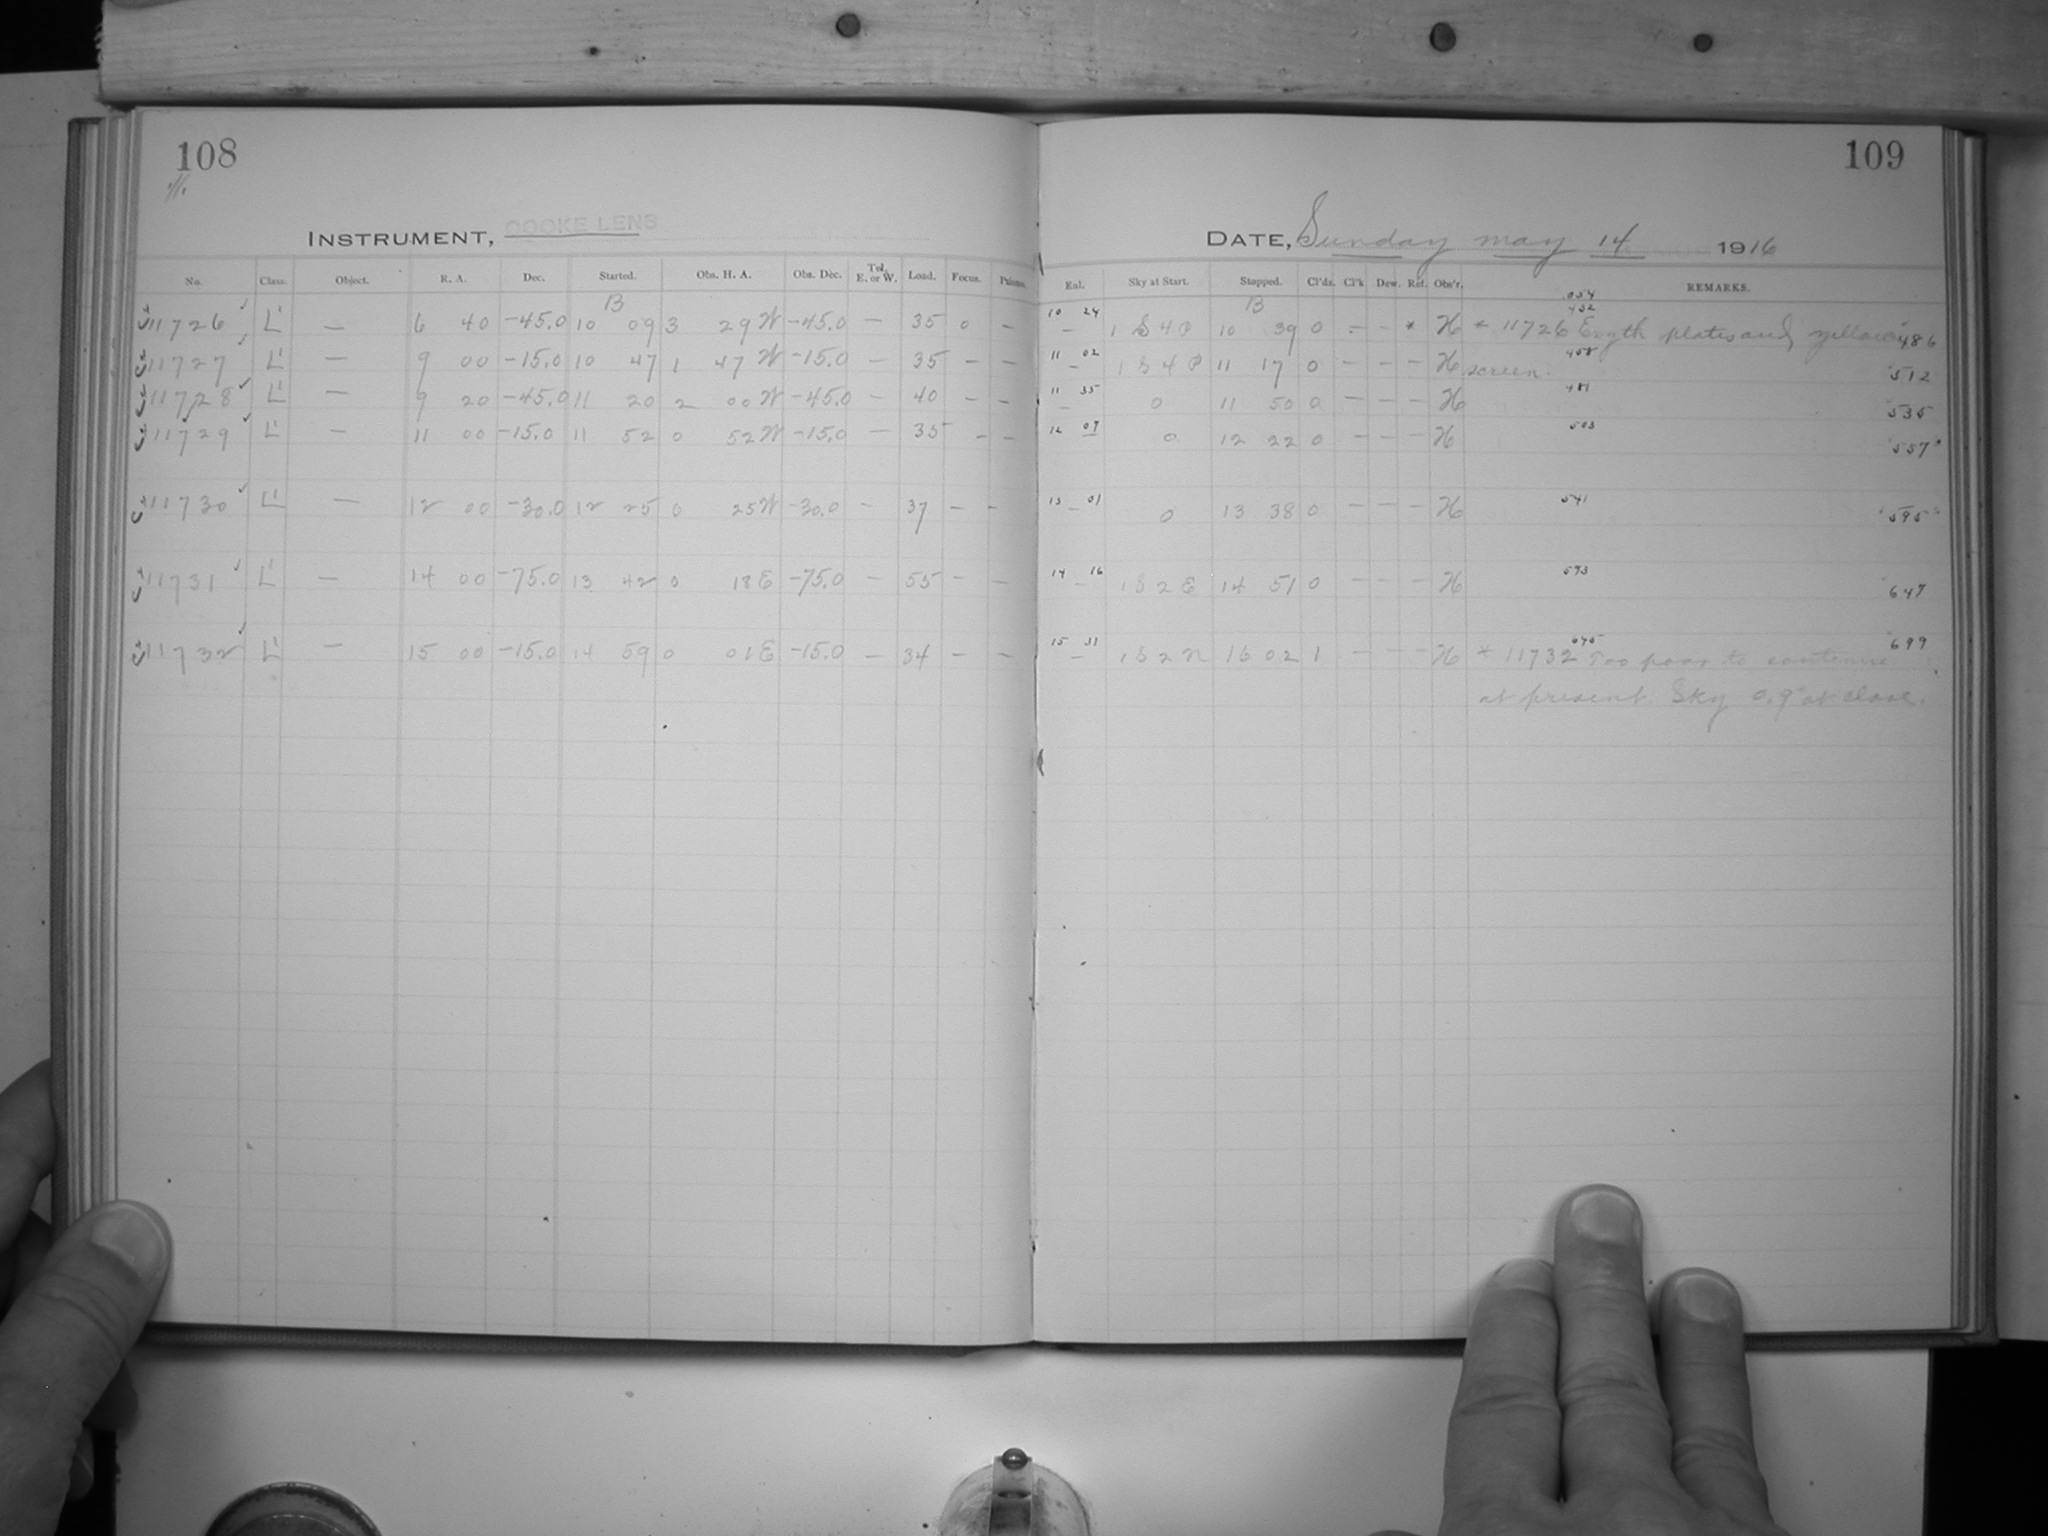 108
109
INSTRUMENT, COOKE LENS
DATE, Sunday May 14 1916
No. Class. Object. R. A. Dec. Started. Obs. H. A. Obs. Dec. Tel. E. or W. Load. Focus. Prisms. Eql. Sky at Start. Stopped. Cl'ds. Cl'k Dew. Ref. Obs'r. REMARKS.
B B .054
11726 L' — 6 40 -45.0 10 09 3 29 W -45.0 — 35 0 — 10 24 1 S 4 P 10 39 0 — — * H * 11726 Eryth plates and yellow 432 486
11727 L' — 9 00 -15.0 10 47 1 47 W -15.0 — 35 — — 11 02 1 S 4 P 11 17 0 — — — H screen. 458 512
11728 L' — 9 20 -45.0 11 20 2 00 W -45.0 — 40 — — 11 35 0 11 50 0 — — — H 481 535
11729 L' — 11 00 -15.0 11 52 0 52 W -15.0 — 35 — — 12 07 0 12 22 0 — — — H 503 557
11730 L' — 12 00 -30.0 12 25 0 25 W -30.0 — 37 — — 13 01 0 13 38 0 — — — H 541 595
11731 L' — 14 00 -75.0 13 42 0 18 E -75.0 — 55 — — 14 16 1 S 2 E 14 51 0 — — — H 593 647
11732 L' — 15 00 -15.0 14 59 0 01 E -15.0 — 34 — — 15 31 1 S 2 N 16 02 1 — — — H * 11732 Too poor to continue 645 699
at present. Sky 0.9 at close.